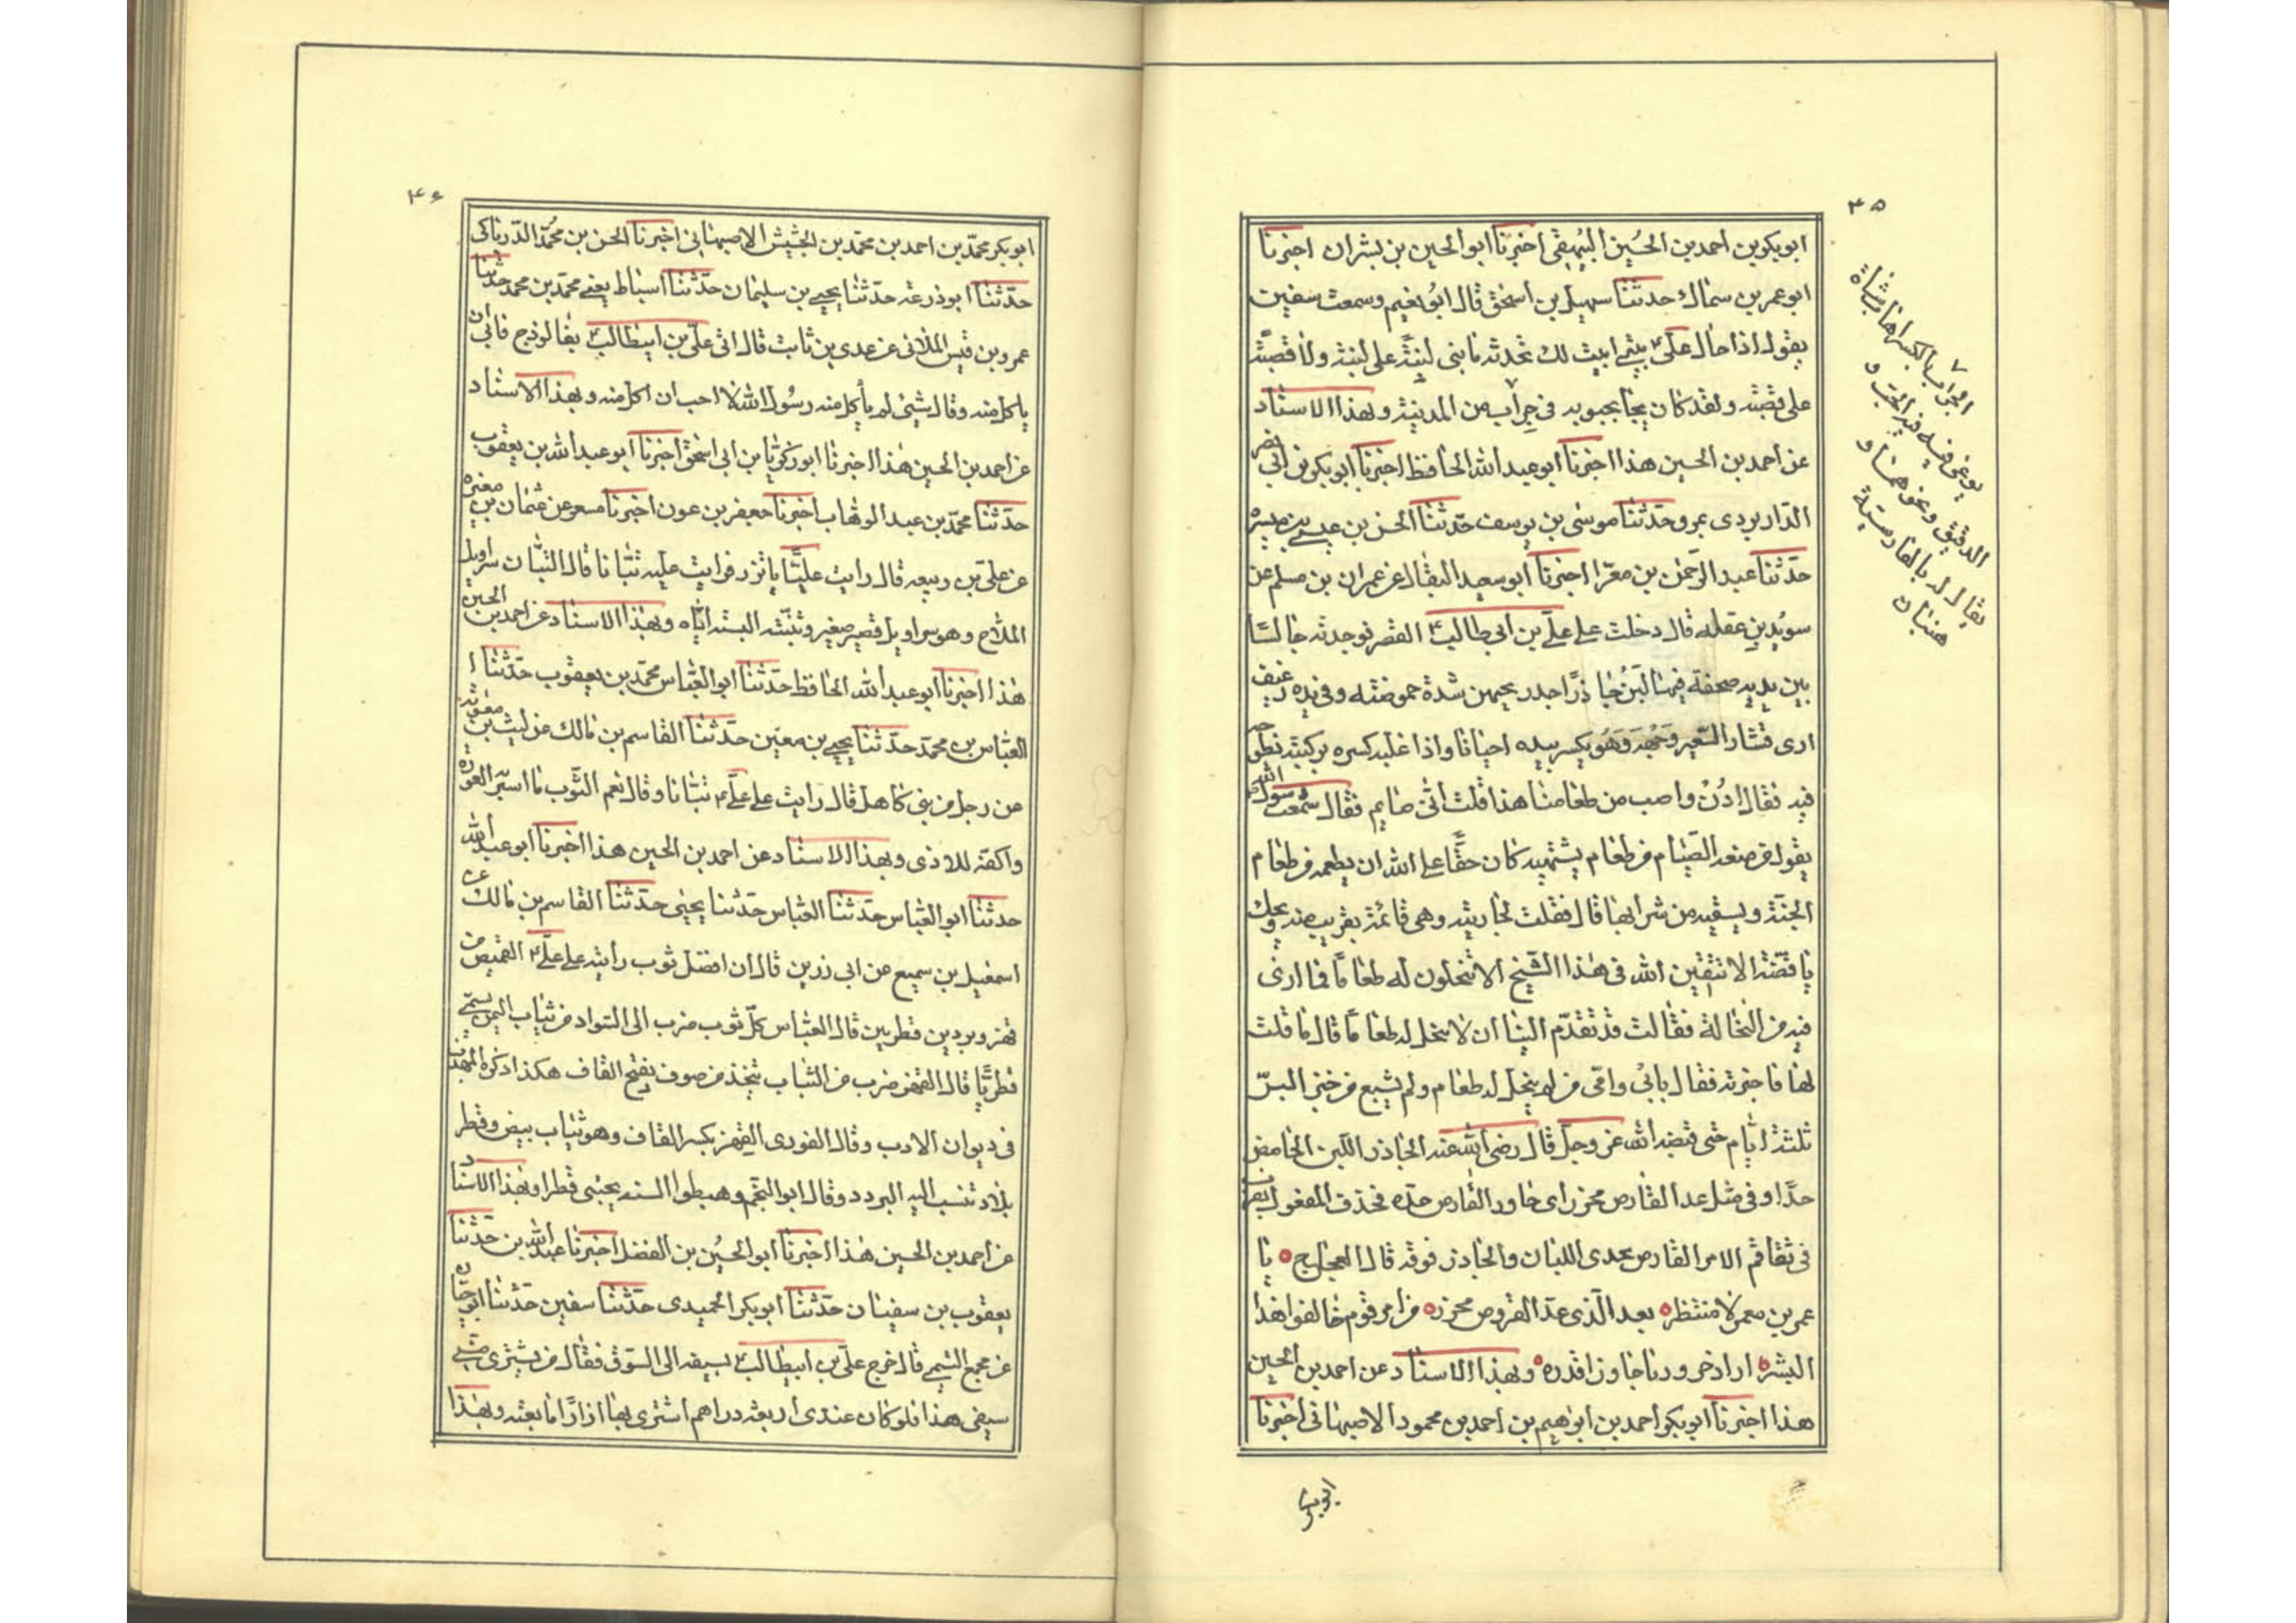 ۴۵
ابوبكر بن احمد بن الحُسين البيهقى اخبرنا ابو الحسين بن بشران اخبرنا
ابو عمر بن سماك حدثنا سهيل بن اسحق قال ابو نعيم وسمعت سفين
يقول اذا جال على بيتى ابيت لك تحدثه ما بنى لبنَة على لبنة ولا قصبَة
على قصبته ولقد كان يجاء بجبوبه فى جِراب من المدينة وبهذا الاسناد
عن احمد بن الحسين هذا اخبرنا ابو عبد الله الحافظ اخبرنا ابو بكر بن ابى نصر
الدّاربردى بمرو حدّثنا موسى بن يوسف حدّثنا الحسن بن عيسى بن ميسره
حدّثنا عبد الرّحمن بن مغرّا اخبرنا ابو سعيد البقال عن عمران بن مسلم عن
سوُيد بن عفله قال دخلت على علىّ بن ابى طالب القصر فوجدته جالسًا
بين يديه صحفة فيها لَبَنٌ حاذرٌ اجد ريحه من شدة حموضته وفى يده رغيف
ارى قشار الشّعير فى وجهه وَهُو يكسر بيده احيانا واذا غلبه كسره بركبته نطرحه
فيه فقال ادُنْ واصب من طعامنا هذا قلت انّى صايم فقال سمعت رسول الله
يقول من منعه الصّيام من طعام يشتهيه كان حقًّا على الله ان يطعمه من طعام
الجنّة ويسقيه من شرابها قال فقلت لجاريته وهى قائمة بقريب منه ويحك
يا فضّة الا تتقين الله فى هذا الشّيخ الا تنخلون له طعامًا فما ارى
فيه من النخالة فقالت قد تقدّم الينا ان لا ننخل له طعامًا قال ما قلت
لها فاخبرته فقال بابىُ وامّى من لم ينخل له طعام ولم يشبع من خبز البرّ
ثلثة ايّام حتى قبضه الله عز وجلّ قال رضى الله عنه الحاذر اللّبن الحامض
جدًّا وفى مثل عدا القارص محزر اى جاوز القارص حدّه فحذف المفعول يضرب
فى تفاقم الامر القارص يحذى اللسان والحاذر فوقه قال العجاج ه يا
عمر بن معمر لا منتظر ه بعد الّذى عدا القروص محزر ه من امر قوم خالفوا هذا
البشر ه اراد حرورنا جاوز اقدره ه وبهذا الاسناد عن احمد بن الحسين
هذا اخبرنا ابو بكر احمد بن ابراهيم بن احمد بن محمود الاصبهانى اخبرنا
الجراب بالكسر انها مشاة
يوعى فيه فيه الحَبّ و
الدقيق ونحوهما و
يقال له بالفارسية
هنبان
۴۶
ابو بكر محمّد بن احمد بن محمّد بن الحشيش الاصبهانى اخبرنا الحسن بن محمّد الدّرناكى
حدّثنا ابو ذرعه حدّثنا يحيى بن سليمان حدّثنا اسباط يعنى محمّد بن محمد حدّثنا
عمرو بن قيس الملائى عن عدى بن ثابت قال اتى علىّ بن ابيطالب بفالوذج فابى ان
ياكل منه وقال شئ لم ياكل منه رسول الله لا احب ان اكل منه وبهذا الاسناد
عن احمد بن الحسين هذا اخبرنا ابو زكريّا بن ابى اسحق اخبرنا ابو عبد الله بن يعقوب
حدّثنا محمّد بن عبد الوهّاب اخبرنا جعفر بن عون اخبرنا مسعر عن عثمان بن مغيره
عن على بن ربيعه قال رايت عليًّا ياتزر فرايت عليه تبّانا قال التبّان سراويل
الملّاح وهو سراويل قصير صغير وتبّنته البسته ايّاه وبهذا الاسناد عن احمد بن الحسين
هذا اخبرنا ابو عبد الله الحافظ حدّثنا ابو العبّاس محمّد بن يعقوب حدّثنا ا
لعبّاس بن محمّد حدّثنا يحيى بن معين حدّثنا القاسم بن مالك عن ليث بن معٰوية
عن رجل من بنى كاهل قال رايت على علىّ تبّانا وقال نعم الثّوب ما استر العورة
واكفّه للاذى وبهذا الاسناد عن احمد بن الحسين هذا اخبرنا ابو عبد الله
حدثنا ابو العبّاس حدّثنا العبّاس حدّثنا يحيٰى حدّثنا القاسم بن مالك عن
اسمعيل بن سميع عن ابى رزين قال ان افضل ثوب رأيته على علىّ القميص من
قهز وبردين قطريين قال العبّاس كلّ ثوب ضرب الى السّواد من ثياب اليمن يسمّى
قطريًّا قال القهز ضرب من الثياب يتّخذ من صوف بفتح القاف هكذا ذكره المهذب
فى ديوان الادب وقال الغورى القِهز بكسر القاف وهو ثياب بيض وقطر
بلاد تنسب اليه البرود وقال ابو النجم وهبطوا السند يجنبى قطرا وبهذا الاسناد
عن احمد بن الحسين هذا اخبرنا ابو الحسُين بن الفضل اخبرنا عبد الله بن حدّثنا
يعقوب بن سفينان حدّثنا ابو بكر الحميدى حدّثنا سفين حدّثنا ابو حيّان
عن مجمع التيمى قال خرج علىّ بن ابيطالب بسيفه الى السّوق فقال من يشترى منّى
سيفى هذا فلو كان عندى اربعة دراهم اشترى بها ازارًا ما بعته وبهذا